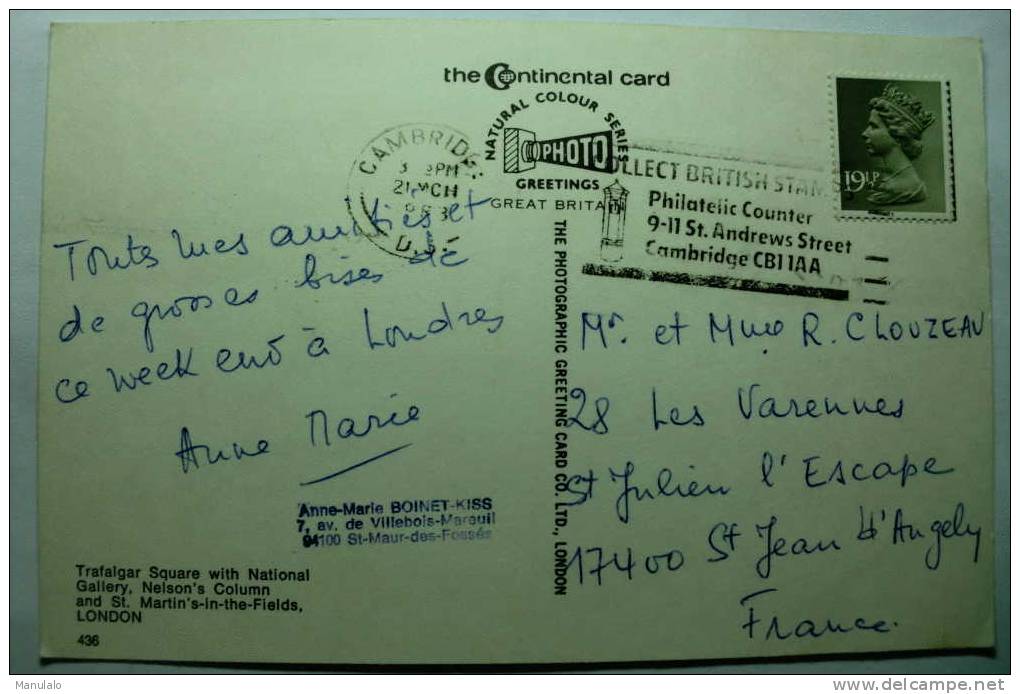 the Continental card
NATURAL COLOUR SERIES
PHOTO
GREETINGS
GREAT BRITAIN
CAMBRIDGE
PM
21 MCH
COLLECT BRITISH STAMPS
Philatelic Counter
9-11 St. Andrews Street
Cambridge CB1 1AA
19½P
Toutes mes amitiés et
de grosses bises de
ce week end à Londres
Anne Marie
Anne-Marie BOINET-KISS
7, av. de Villebois-Mareuil
94100 St-Maur-des-Fossés
Trafalgar Square with National
Gallery, Nelson's Column
and St. Martin's-in-the-Fields,
LONDON
436
THE PHOTOGRAPHIC GREETING CARD CO. LTD., LONDON
Mr. et Mme R. CLOUZEAU
28 Les Varennes
St Julien l'Escape
17400 St Jean d'Angely
France.
Manulalo